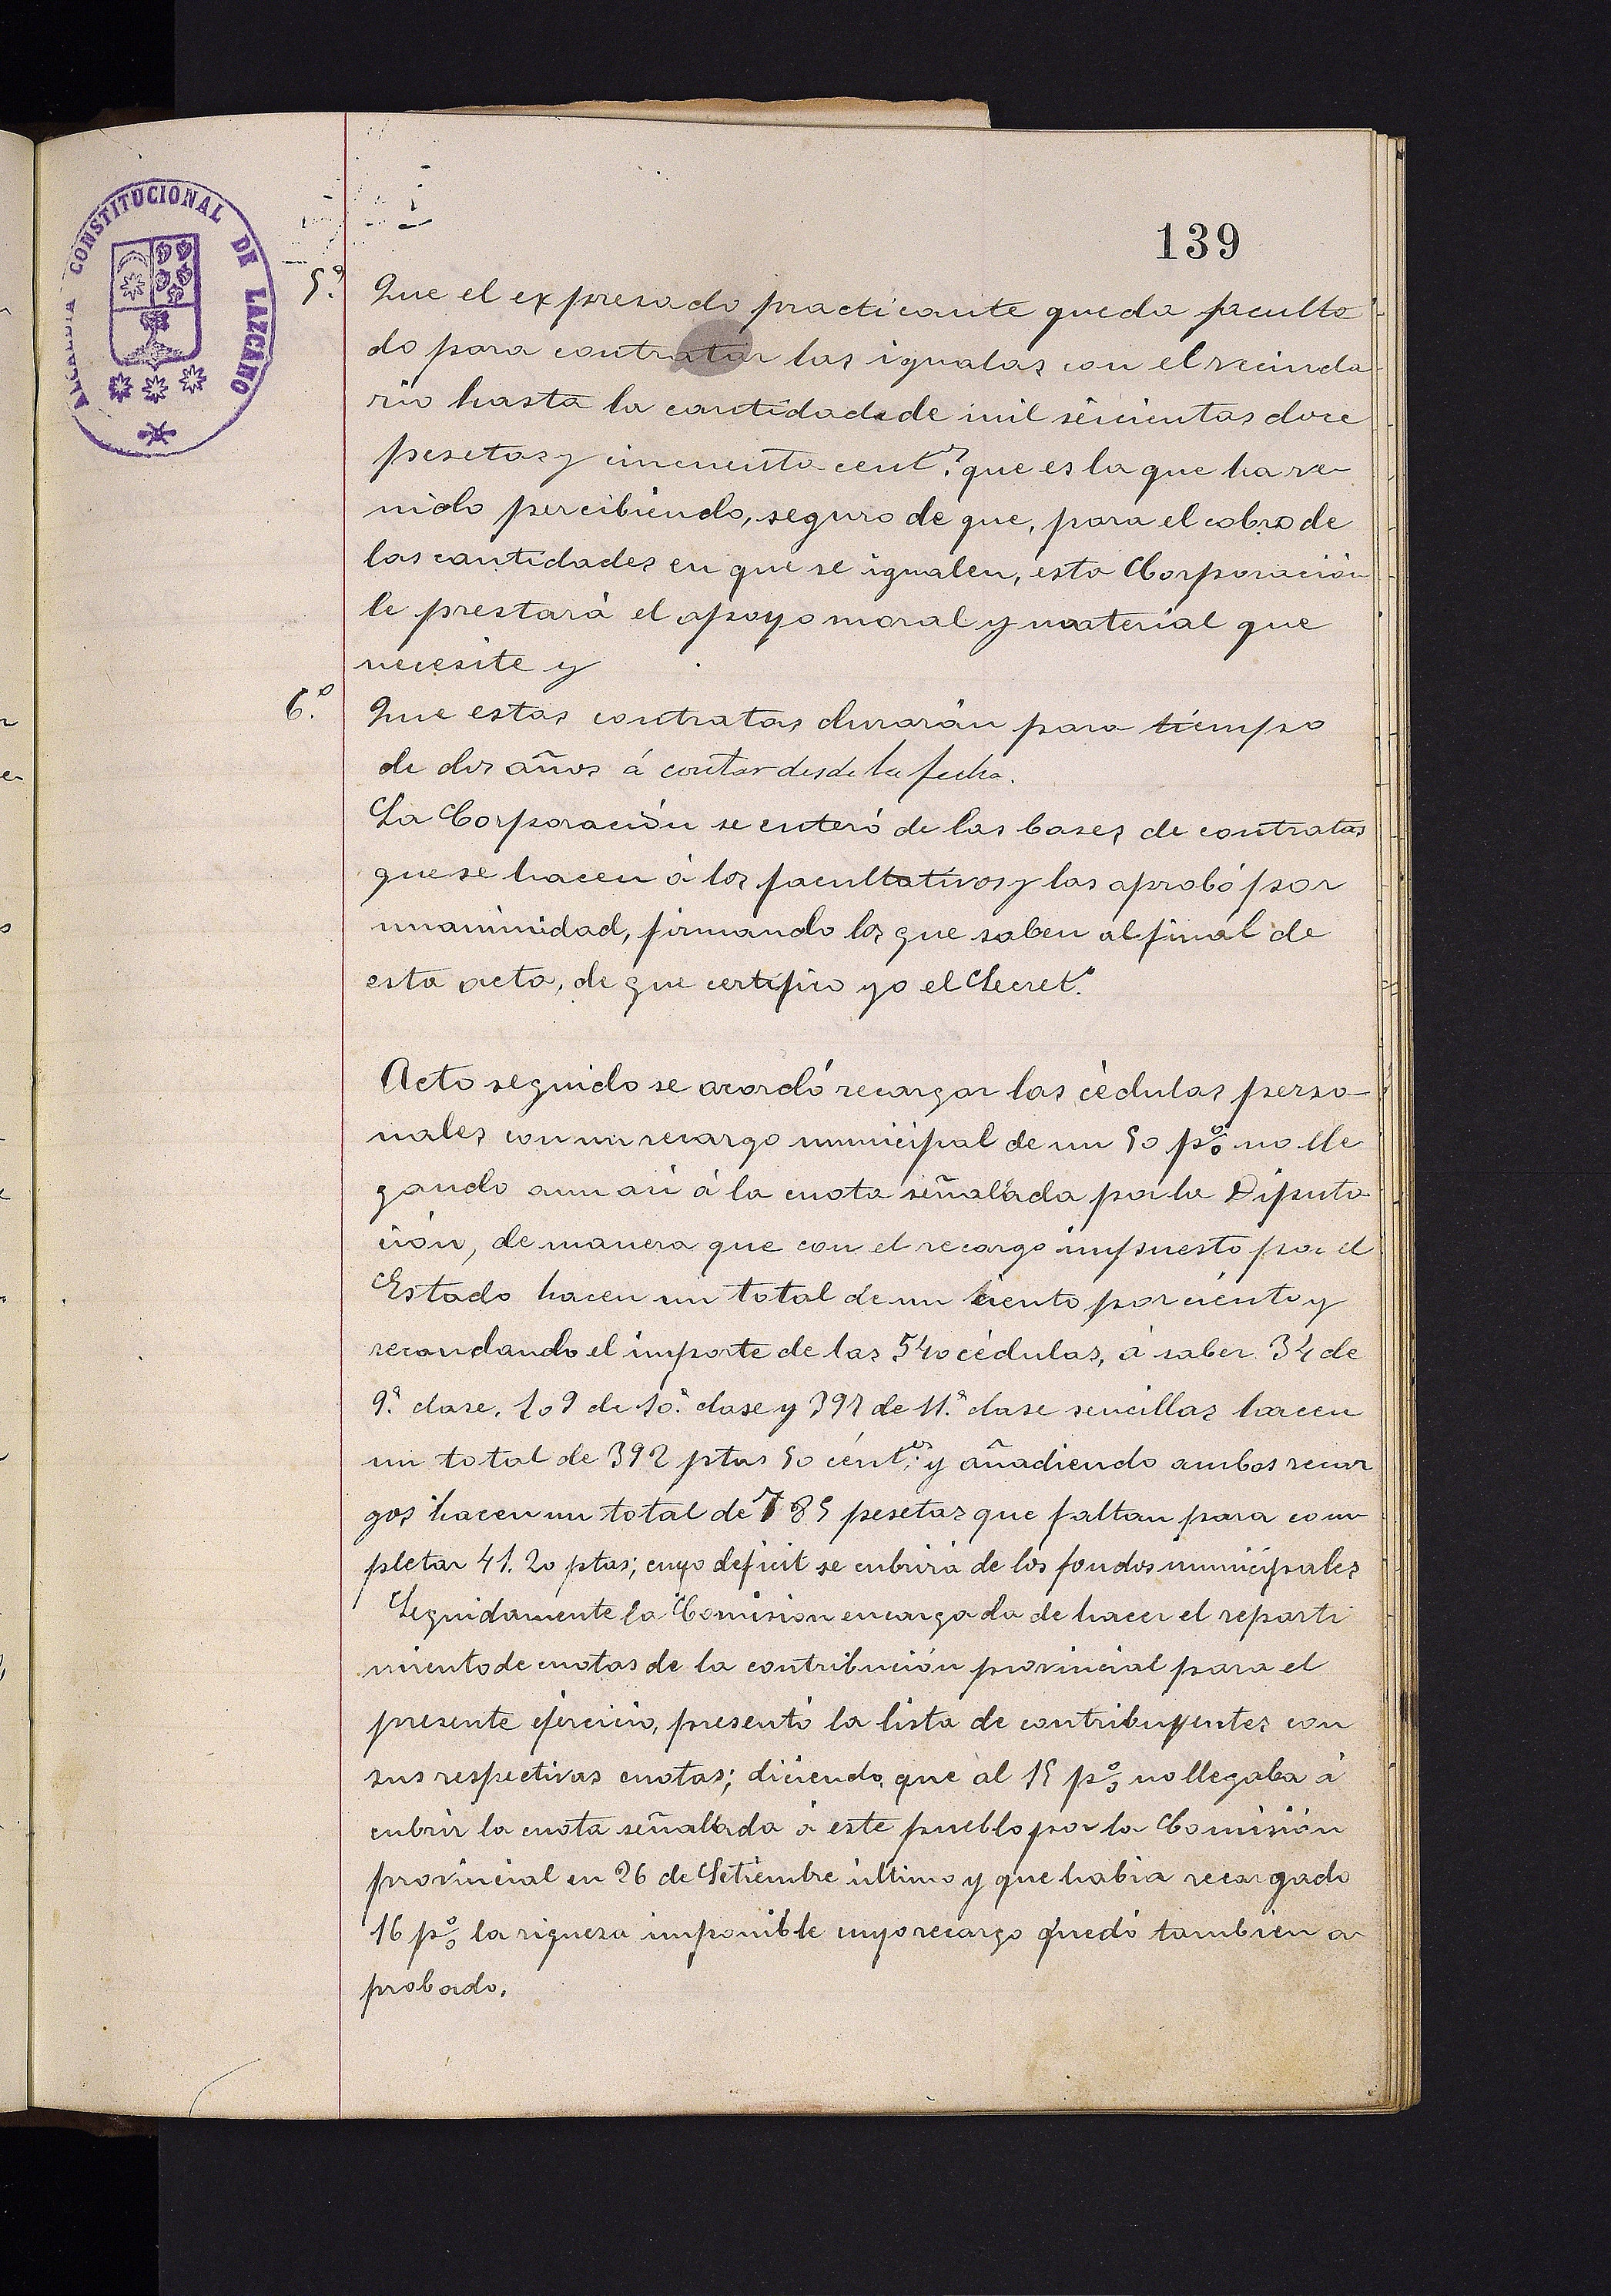 ALCALDIA CONSTITUCIONAL DE LAZCANO
139
5.º Que el expresado practicante queda faculta
do para contratar las igualas con el vecinda
rio hasta la cantidad de mil seicientas doce
pesetas y cincuenta cent.s que es la que ha ve-
nido percibiendo, seguro de que, para el cobro de
las cantidades en que se igualen, esta Corporación
le prestará el apoyo moral y material que
necesite y
6.º Que estas contratas durarán para tiempo
de dos años á contar desde la fecha.
La Corporación se enteró de las bases de contratas
que se hacen á los facultativos y las aprobó por
unanimidad, firmando los que saben al final de
esta acta, de que certifico yo el Secret.º
Acto seguido se acordó recargar las cédulas perso-
nales con un recargo municipal de un 50 p% no lle
gando aun asi á la cuota señalada por la Diputa
ción, de manera que con el recargo impuesto por el
Estado hacen un total de un ciento por ciento y
recaudando el importe de las 540 cédulas, á saber 34 de
9.ª clase, 109 de 10.ª clase y 397 de 11.ª clase sencillas hacen
un total de 392 ptas 50 cént.os y añadiendo ambos recar
gos hacen un total de 785 pesetas que faltan para com
pletar 41.20 ptas; cuyo deficit se cubrirá de los fondos municipales
Seguidamente la Comision encargada de hacer el reparti
miento de cuotas de la contribución provincial para el
presente ejercicio, presentó la lista de contribuyentes con
sus respectivas cuotas; diciendo, que al 15 p% no llegaba á
cubrir la cuota señalada á este pueblo por la Comisión
provincial en 26 de Setiembre último y que habia recargado
16 p% la riqueza imponible cuyo recargo quedó tambien a
probado.